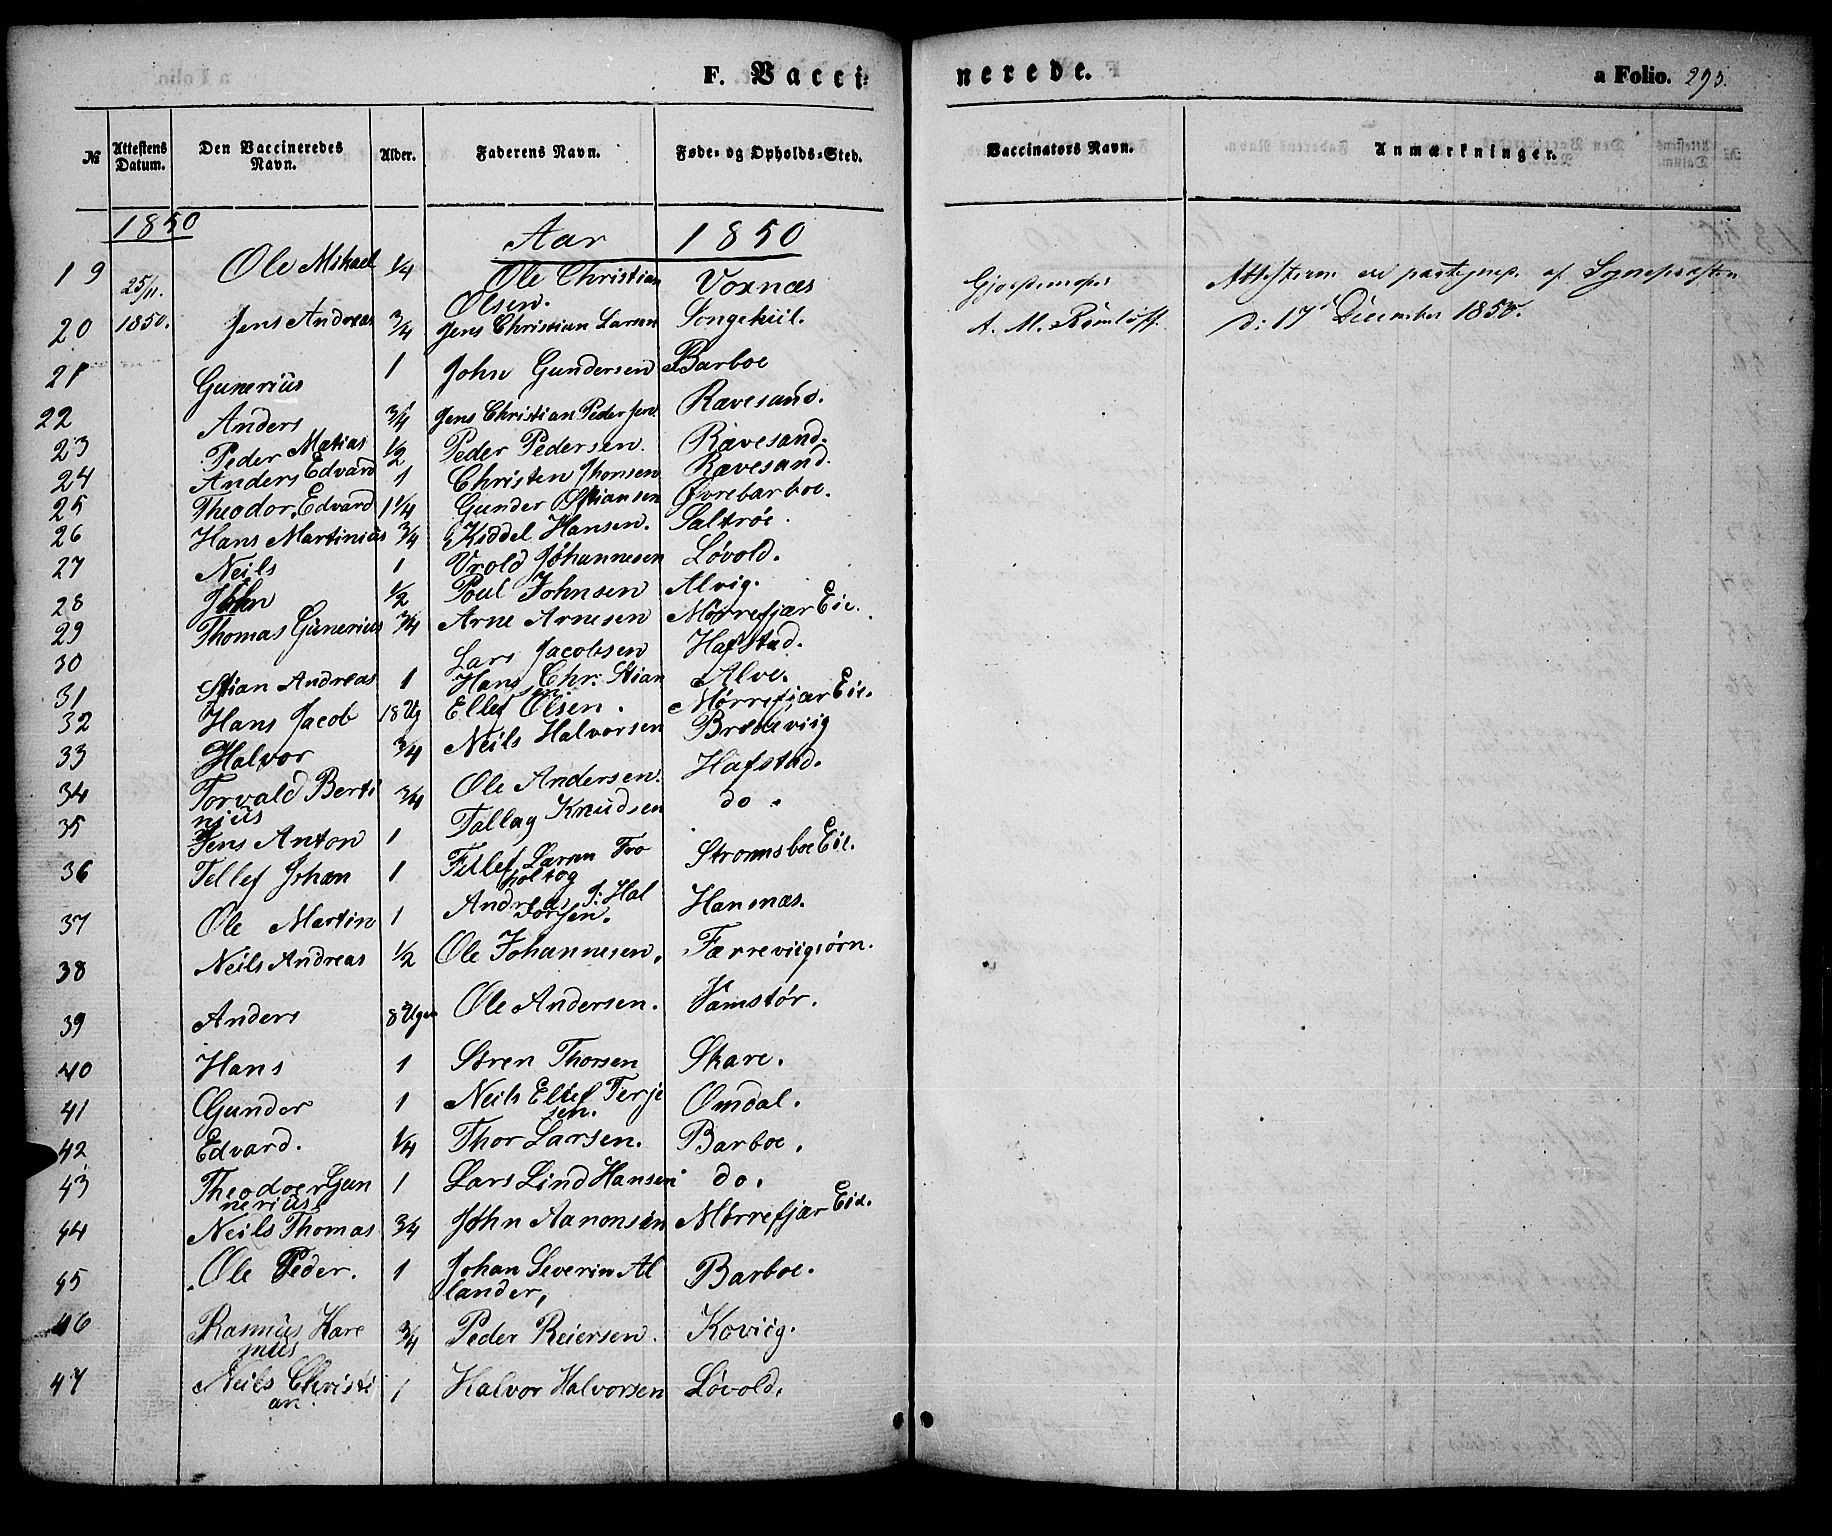 F. Vacci-
nerede.
a Folio. 295.
№ Attestens Datum. Den Vaccineredes Navn. Alder. Faderens Navn. Føde- og Opholds-Sted. Vaccinators Navn. Anmærkninger.
1850 Aar 1850
19 25/11. Ole Mikael 1/4 Ole Christian Voxnæs
Olsen.
20 1850. Jens Andreas 3/4 Jens Christian Larsen Songekiil. A. M.
d: 17 December 1850.
21 Gunerius 1 John Gundersen Barboe
22 Anders 3/4 Jens Christian Pedersen Rævesand.
23 Peder Matias 1/2 Peder Pedersen. Rævesand.
24 Anders Edvard 1 Christen Jhonsen Rævesand.
25 Theodor Edvard 1 1/4 Gunder Østiansen Øvrebarboe.
26 Hans Martinius 3/4 Kiddel Hansen. Saltrøe.
27 Neils 1 Vrold Johannesen Løvold.
28 John 1/2 Poul Johnsen Alvig.
29 Thomas Gunerius 3/4 Arne Arnesen Mørrefjær Eie.
30 Lars Jacobsen Hafstad.
31 Stian Andreas 1 Hans Chr: Stian Alve.
sen.
32 Hans Jacob 18 Ug Ellef Olsen. Mørrefjær Eie.
33 Halvor 3/4 Neils Halvorsen Bredeviig
34 Torvald Berti 3/4 Ole Andersen. Hafstad.
nius
35 Jens Anton 1 Tallag Knudsen do.
36 Tellef Johan 1 Tellef Larsen Fro Strømsboe Eie.
holtog
37 Ole Martin 1 Andreas J: Hal Hansnæs.
vorsen.
38 Neils Andreas 1/2 Ole Johannesen. Færreviigsørn.
39 Anders 8 Uger Ole Andersen. Vamstør.
40 Hans 1 Søren Thorsen Skare.
41 Gunder 1 Neils Ellef Terje Omdal.
sen.
42 Edvard. 1/4 Thor Larsen. Barboe.
43 Theodoer Gun 1 Lars Lind Hansen do.
nerius
44 Neils Thomas 3/4 John Aanonsen Mørrefjær Eie.
45 Ole Peder. 1 Johan Severin Al Barboe.
lander,
46 Rasmus Hare 3/4 Peder Reiersen. Koviig.
mus
47 Neils Christi 1 Halvor Halvorsen Løvold.
an.